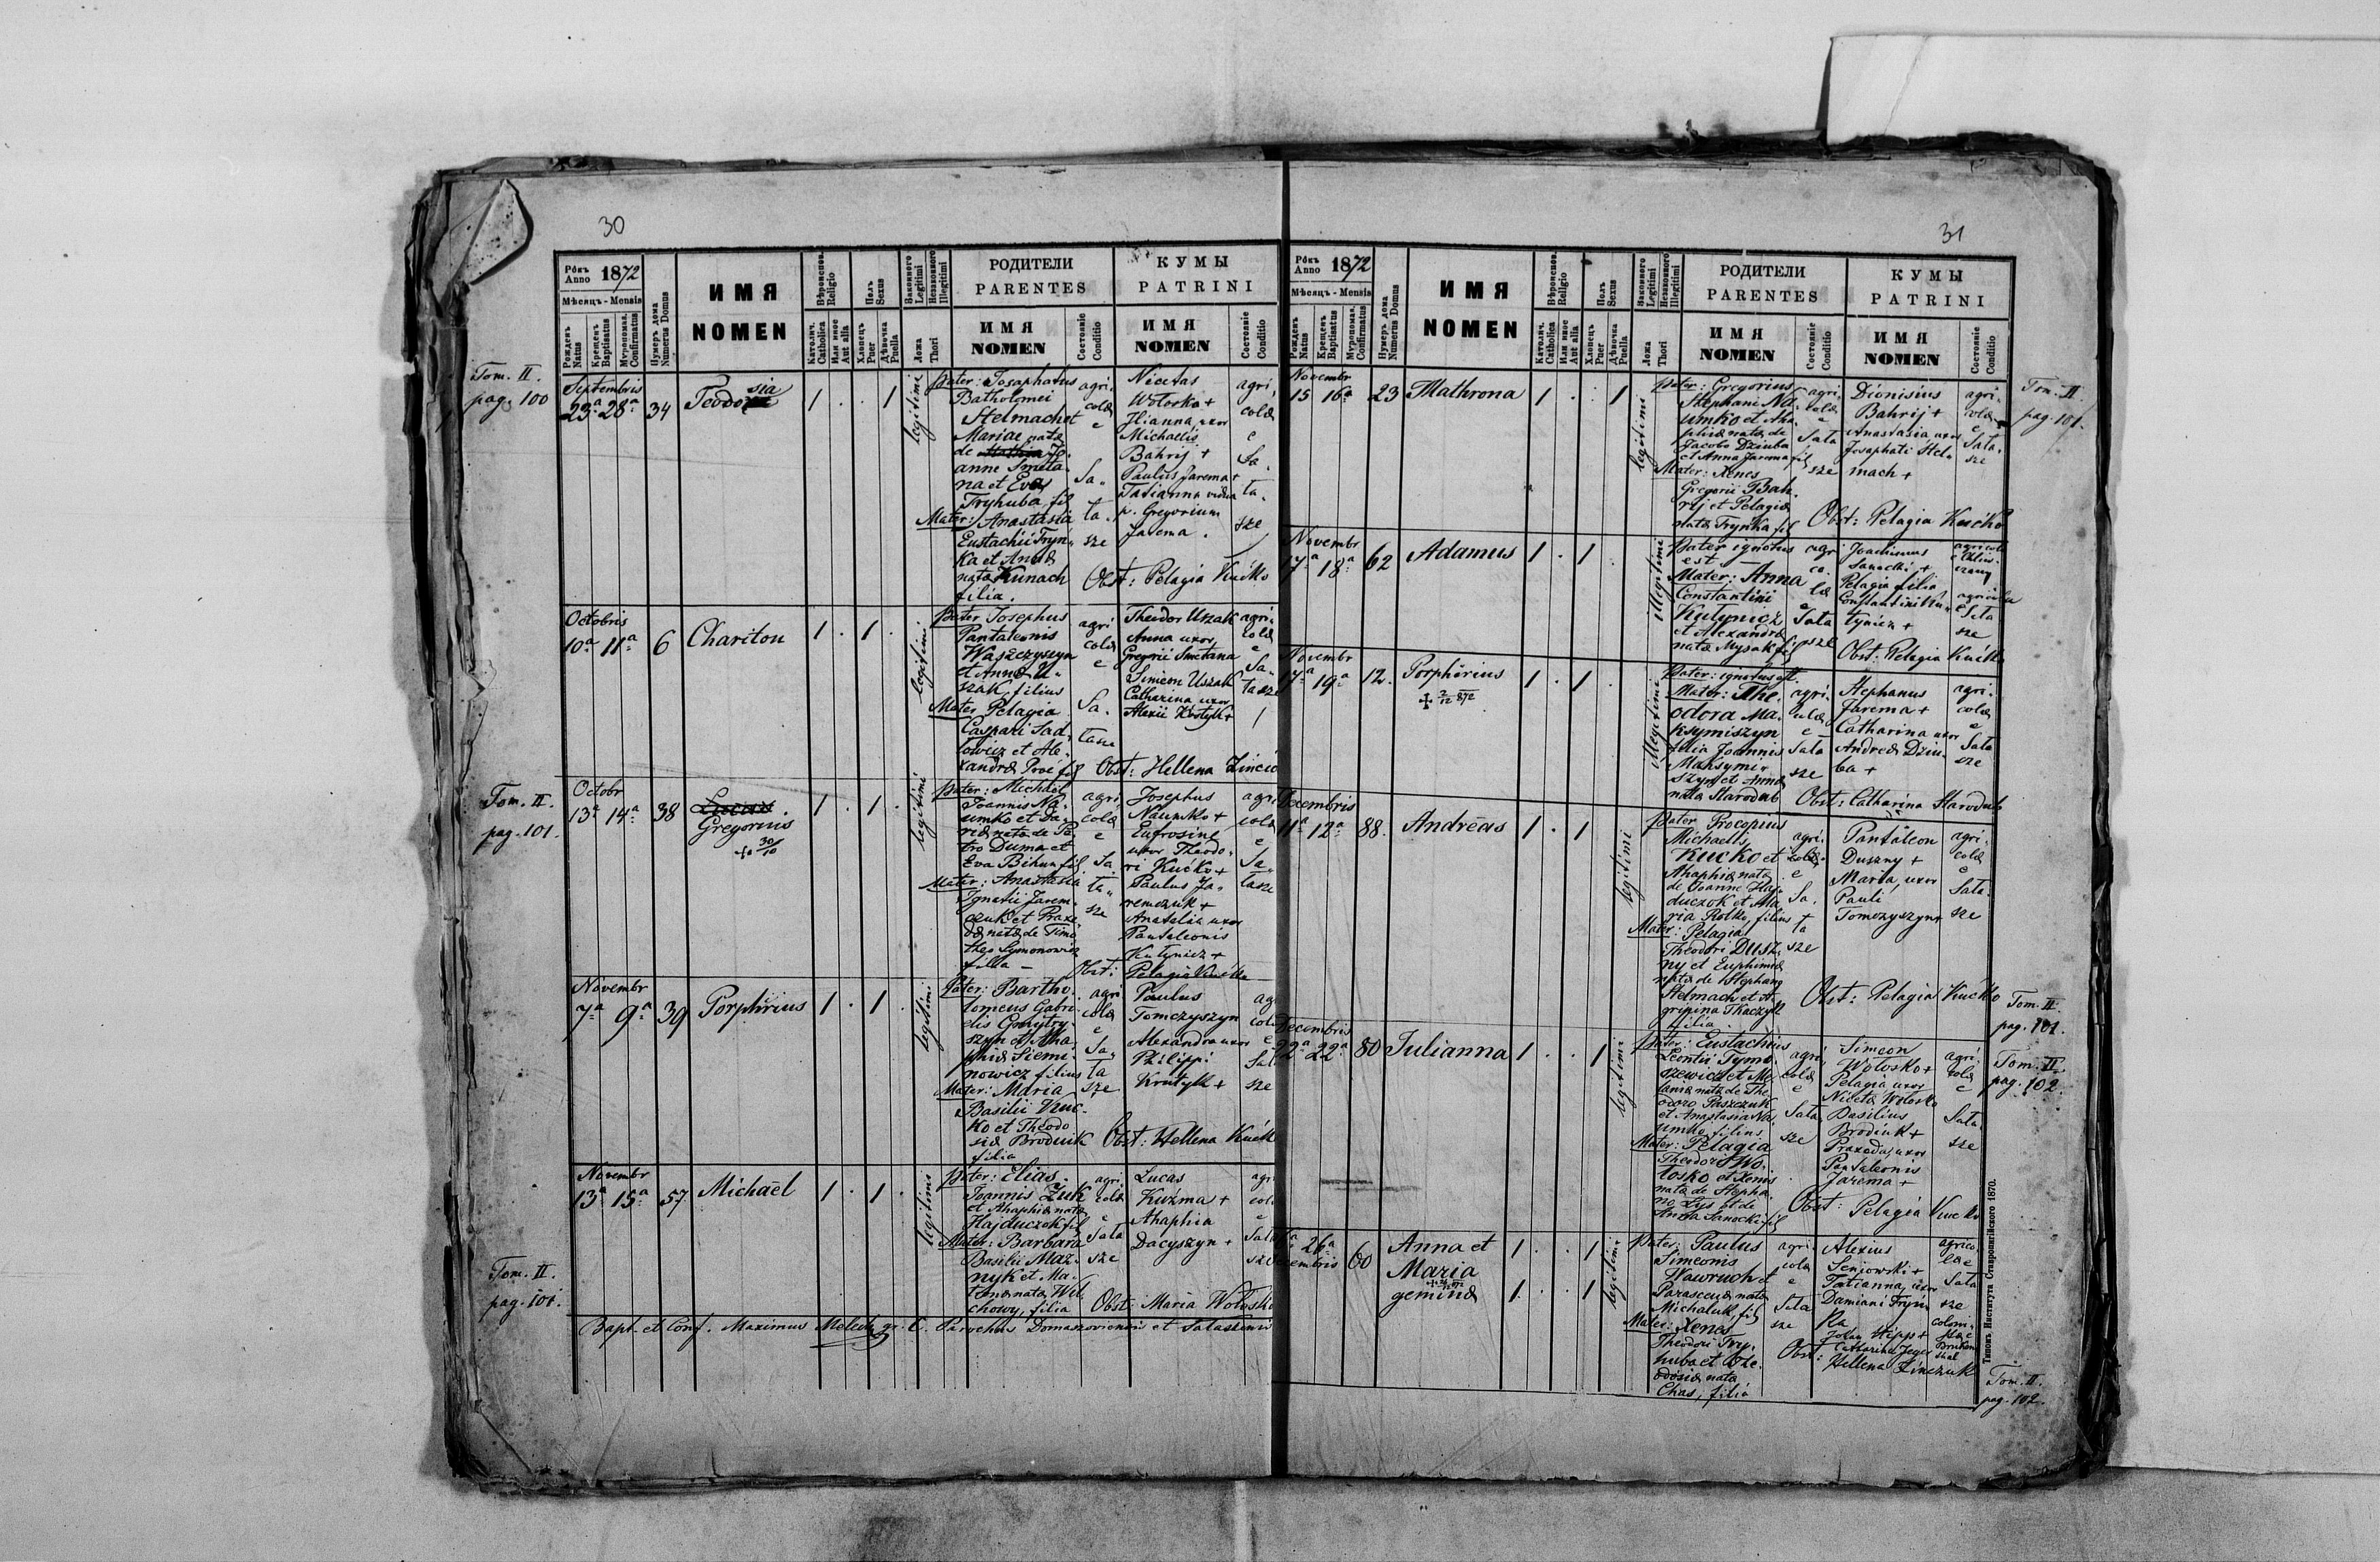 30
Рôкъ Anno 1872
Мѣсяцъ - Mensis
Рожденъ Natus
Крещенъ Baptisatus
Мѵропомаз. Confirmatus
Нумеръ дома Numerus Domus
ИМЯ
NOMEN
Вѣроиспов. Religio
Католич. Catholica
Или иное Aut alia
Полъ Sexus
Хлопецъ Puer
Дѣвочка Puella
Законного Legitimi
Незаконного Illegitimi
Ложа Thori
РОДИТЕЛИ
PARENTES
ИМЯ
NOMEN
Состояніе Conditio
КУМЫ
PATRINI
ИМЯ
NOMEN
Состояніе Conditio
Tom. II.
pag. 100
Septembris
23a 28a 34
Teodosia
1 . . 1
legitimi
Pater: Josaphatus
Batholomei
Stelmach et
Mariae nata
de Jo-
anne Smeta-
na et Eva
Tryhuba fil
Mater: Anastasia
Eustachii Tryn-
ka et Anna
nata Kunach
filia.
agri-
cola
e
Sa-
ta-
sze
Nicetas
Wolosko +
Ilianna uxor
Michaelis
Bahrij +
Paulus Jarema +
Tatianna vidua
p. Gregorium
Jarema.
agri
cola
e
Sa-
ta-
sze
Obst: Pelagia Kućko
Octobris
10a 11a 6 Chariton
1 . 1 .
legitimi
Pater Josephus
Pantaleonis
Waszczyszyn
et Anna U-
szak, filius
Mater Pelagia
Caspari Sad-
lowicz et Ale-
xandra Proć fil
agri
cola
e
Sa-
tasze
Theodor Uszak
Anna uxor
Gregrii Smetana
Simeon Uszak
Catharina uxor
Alexii Krotyk +
agri-
cola
e
Sa-
tasze
Obst: Hellena Zincio
Tom. II.
pag. 101.
Octobr
13a 14a 38
Gregorius
+ 30/10
1 . 1 .
legitimi
Pater: Michael
Joannis Na-
umko et Da-
ria nata de Pe-
tro Duma et
Eva Bihun fil
Mater: Anastasia
Ignatii Jarem-
czuk et Praxe-
da nata de Timo-
theo Symonowicz
filia
agri
cola
e
Sa-
ta-
sze
Josephus
Naumko +
Eufrosine
uxor Theodo-
ri Kućko +
Paulus Ja-
remczuk +
Anatalia uxor
Pantaleonis
Kutynicz +
agri
cola
e
Sa-
tasze
Obst: Pelagia Kućko
Novembr
7a 9a 39 Porphirius
1 . 1 .
legitimi
Pater: Bartho-
lomeus Gabri-
elis Gmytry-
szyn et Aha-
phia Siemi-
nowicz filius
Mater: Maria
Basilii Kuc-
ko et Theodo
sia Broduik
filia
agri
cola
e
Sa-
ta
sze
Paulus
Tomczyszyn
Alexandra uxor
Philippi
Krotyk +
Obst: Hellena Kućk
Novembr
13a 15a 57 Michaël
1 . 1 .
legitimi
Pater: Elias
Joannis Żuk
et Ahaphia nata
Hajduczok fil
Mater: Barbara
Basilii Maz-
nyk et Ma-
nata Wil-
chowy, filia
agri
cola
e
Sata
sze
Lucas
Kuźma +
Ahaphia
Dacyszyn +
Obst: Maria Wolosko
Tom. II.
pag. 101.
Bapt. et Conf. Maximus gr. C. Parochus Domaszoviensis et Sataszensis
31
Рôкъ Anno 1872
Мѣсяцъ - Mensis
Рожденъ Natus
Крещенъ Baptisatus
Мѵропомаз. Confirmatus
Нумеръ дома Numerus Domus
ИМЯ
NOMEN
Вѣроиспов. Religio
Католич. Catholica
Или иное Aut alia
Полъ Sexus
Хлопецъ Puer
Дѣвочка Puella
Законного Legitimi
Незаконного Illegitimi
Ложа Thori
РОДИТЕЛИ
PARENTES
ИМЯ
NOMEN
Состояніе Conditio
КУМЫ
PATRINI
ИМЯ
NOMEN
Состояніе Conditio
Novembr
15 16a 23 Mathrona
1 . . 1
legitimi
Pater: Gregorius
Stephani Na-
umko et Aha-
phia nata de
Jacobo Dziuba
et Anna Jarema fil
Mater: Xenes
Gregorii Bah-
rij et Pelagia
nata Trynka fil
agri-
cola
e
Sata
sze
Dionisius
Bahrij +
Anastasia uxor
Josaphati Stel-
mach +
agri-
cola
e
Sata-
sze
Obst: Pelagia Kućko
Tom. II.
pag. 101.
Novembr
17a 18a 62 Adamus
1 . 1 .
illegitimi
Pater ignotus
est
Mater: Anna
Constantini
Kutynicz
et Alexandra
nata Mysak fil
agri
co-
la
e
Sata
sze
Joachimus
Sanocki +
Pelagia filia
Constantini Ku-
tynicz +
agricola
agricola
e Sata
sze
Obst: Pelagia Kućko
Novembr
17a 19a 12. Porphirius
+ 2/12 872
1 . 1 .
illegitimi
Pater: ignotus est.
Mater: The-
odora Ma-
ksymiszyn
filia Joannis
Maksymi-
szyn et Anna
nata Starodub
agri-
cola
e
Sata
sze
Stephanus
Jarema +
Catharina uxor
Andrea Dziu-
ba +
agri-
cola
e
Sata
sze
Obst: Catharina Starodub
Decembris
11a 12a 88. Andreas
1 . 1 .
legitimi
Pater Procopius
Michaelis
Kucko et
Ahaphia nata
de Joanne Haj-
duczok et Ma-
ria Rolko, filius
Mater: Pelagia
Theodori Dusz-
ny et Euphimia
nata de Stephano
Stelmach et A-
gripina Tkaczyk
filia
agri-
cola
e
Sa-
ta
sze
Pantaleon
Duszny +
Maria uxor
Pauli
Tomczyszyn +
agri-
cola
e
Sata-
sze
Obst: Pelagia Kućko
Tom. II.
pag. 101.
Decembris
22a 22a 80 Julianna
1 . . 1
legitimi
Pater: Eustachius
Leontii Tymo-
szewicz et Me-
lania nata de The-
odoro Paszczuk
et Anastasia Na-
umko filius
Mater: Pelagia
Theodori Wo-
losko et Xenis
nata de Stepha-
no Lys et de
Anna Sanocki fil
agri-
cola
e
Sata
sze
Simeon
Wolosko +
Pelagia uxor
Niceta Wolosko
Basilius
Brodiuk +
Praxeda, uxor
Pantaleonis
Jarema +
agri-
cola
e
Sata
sze
Obst: Pelagia Kucko
Tom. II.
pag. 102.
26a
60 Anna et
Maria
gemina
1 . . 1
1 . . 1
legitimi
Pater: Paulus
Simeonis
Wawruch et
Parasceua nata
Michaluk fil
Mater: Xenes
Theodori Try-
huba et The-
odosia nata
Chas, filia
agri-
cola
e
Sata
sze
Alexius
Seniowski +
Tatianna, uxor
Damiani Tryn-
ka
agrico-
lae
Sata
sze
Obst: Hellena Zinczuk
Tom. II.
pag. 102.
Типомъ Института Ставропигійского 1870.